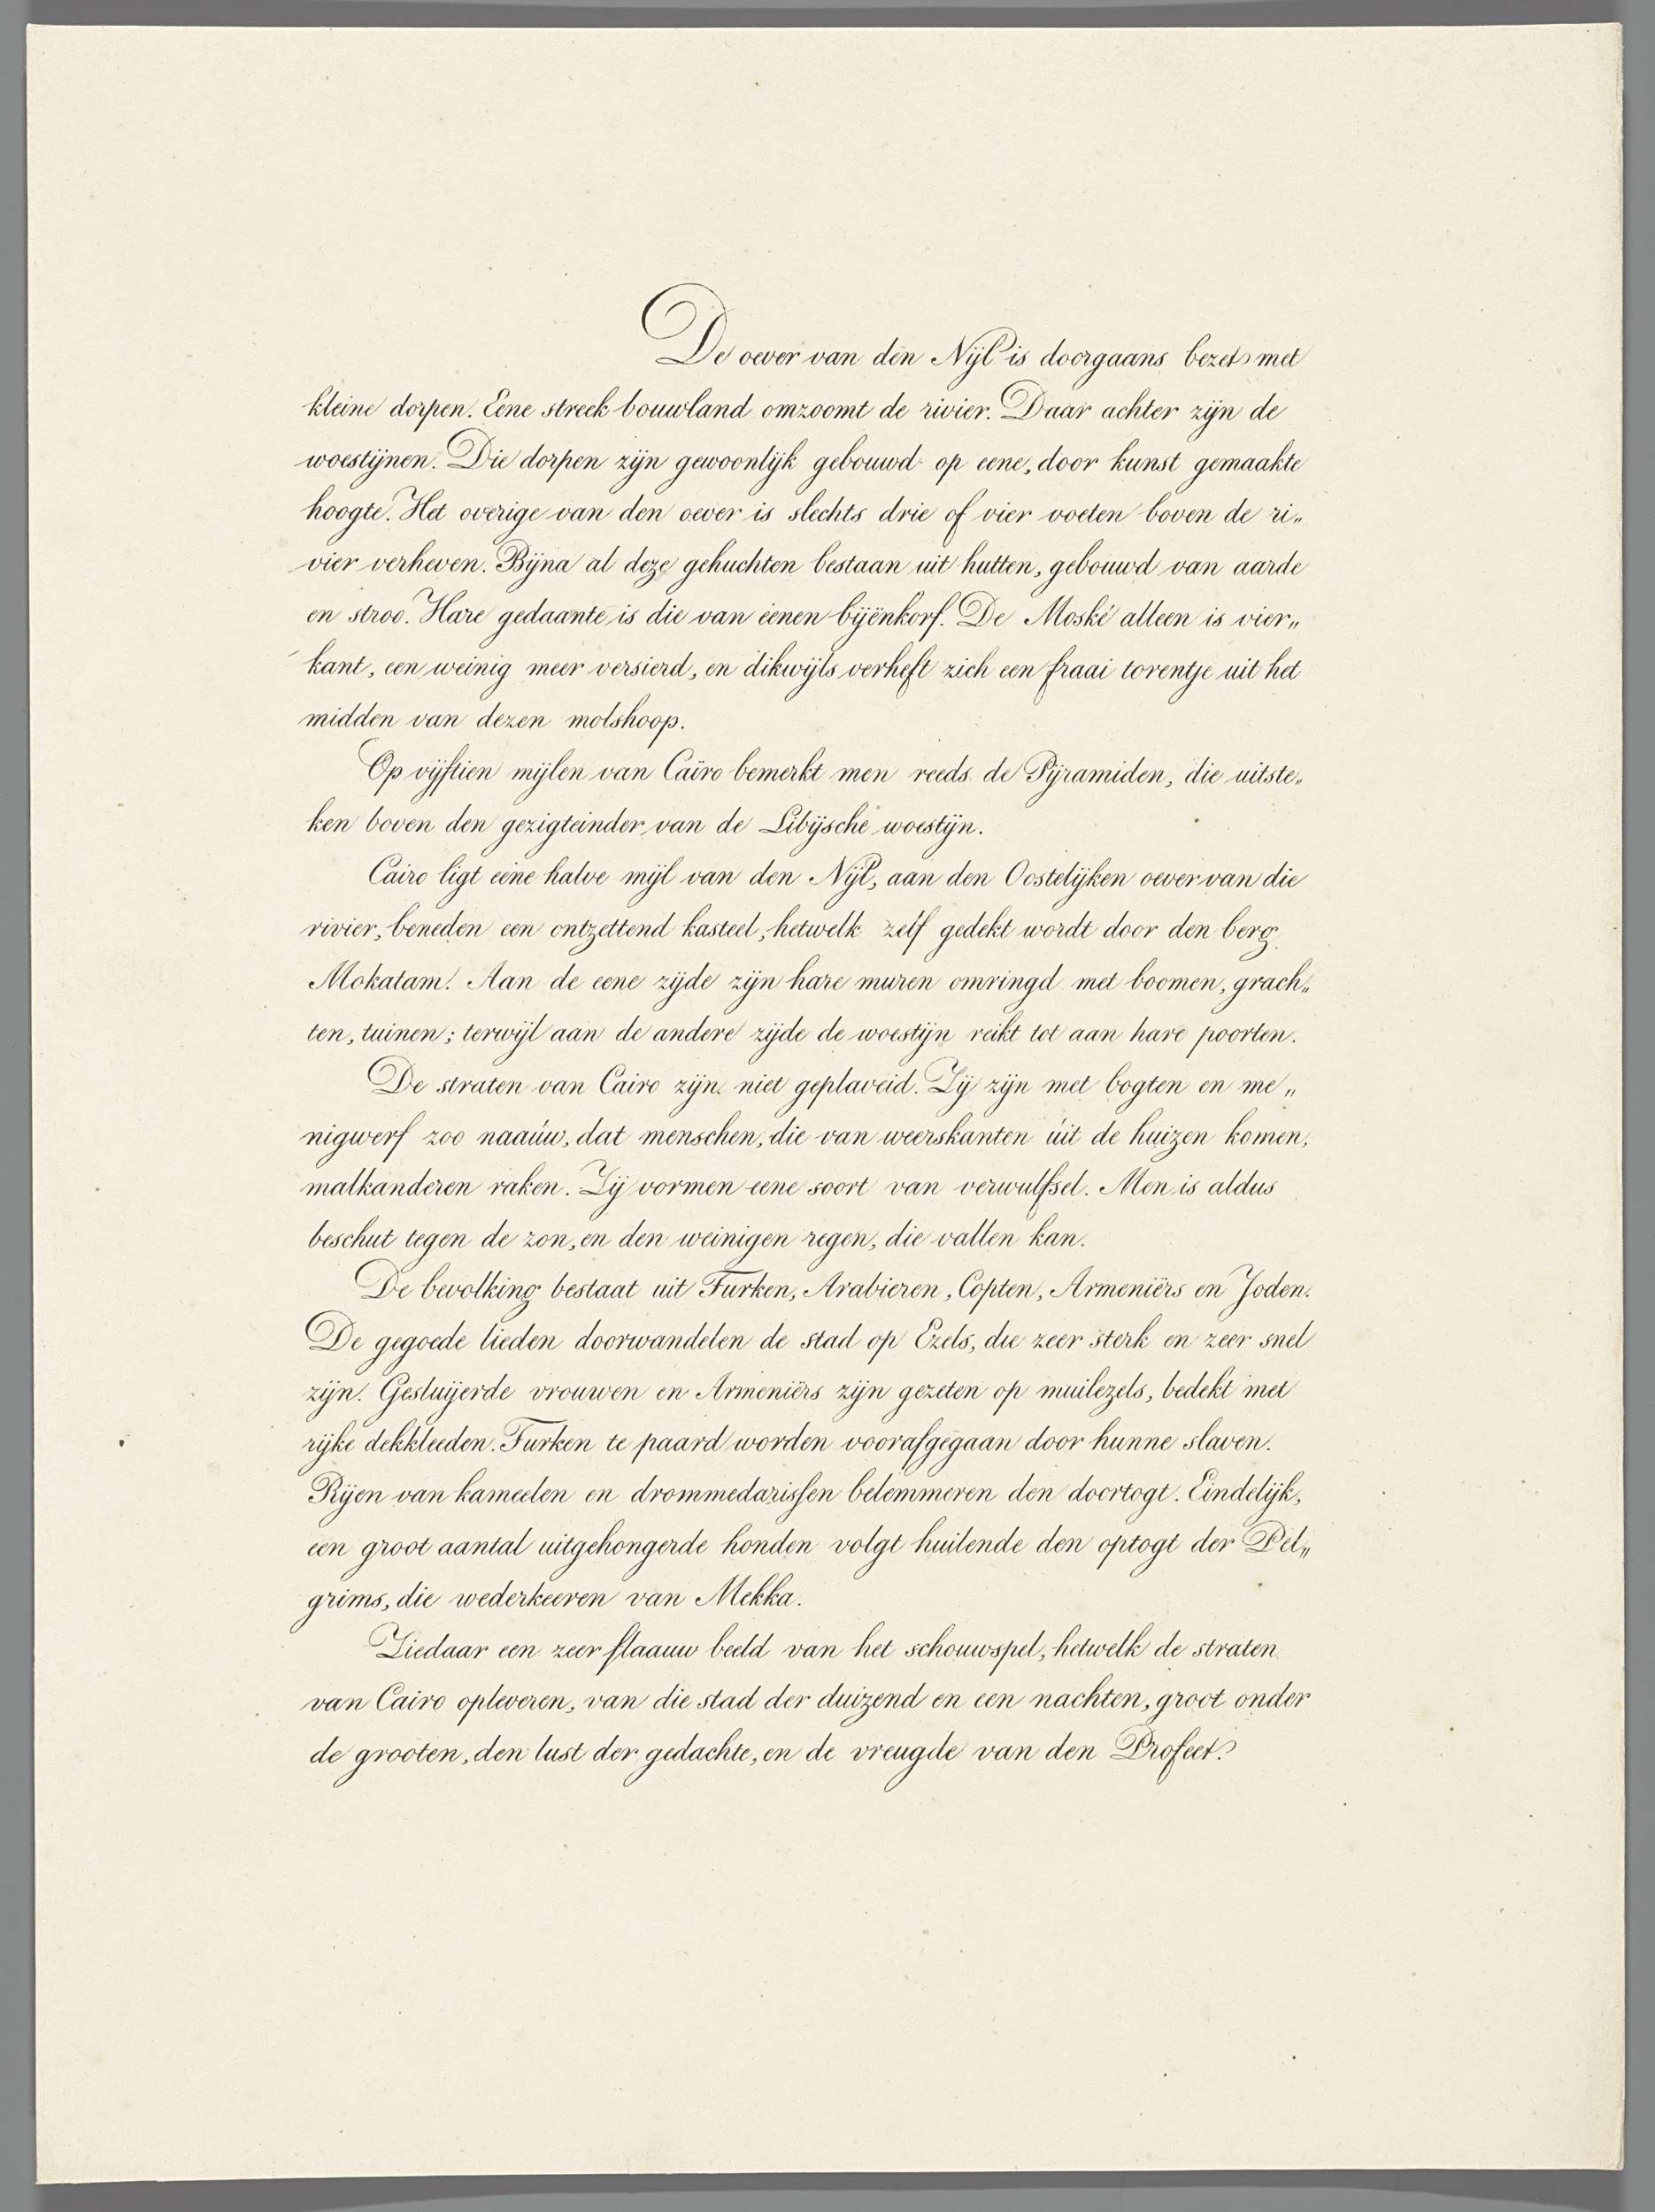 De oever van den Nijl is doorgaans bezet met
kleine dorpen. Eene streek bouwland omzoomt de rivier. Daar achter zijn de
woestijnen. Die dorpen zijn gewoonlijk gebouwd op eene, door kunst gemaakte
hoogte. Het overige van den oever is slechts drie of vier voeten boven de ri„
vier verheven. Bijna al deze gehuchten bestaan uit hutten, gebouwd van aarde
en stroo. Hare gedaante is die van eenen bijënkorf. De Moské alleen is vier„
kant, een weinig meer versierd, en dikwijls verheft zich een fraai torentje uit het
midden van dezen molshoop.
Op vijftien mijlen van Caïro bemerkt men reeds de Pijramiden, die uitste„
ken boven den gezigteinder van de Libijsche woestijn.
Cairo ligt eene halve mijl van den Nijl, aan den Oostelijken oever van die
rivier, beneden een ontzettend kasteel, hetwelk zelf gedekt wordt door den berg
Mokatam. Aan de eene zijde zijn hare muren omringd met boomen, grach„
ten, tuinen; terwijl aan de andere zijde de woestijn reikt tot aan hare poorten.
De straten van Cairo zijn niet geplaveid. Zij zijn met bogten en me„
nigwerf zoo naaúw, dat menschen, die van weerskanten úit de huizen komen,
malkanderen raken. Zij vormen eene soort van verwulfsel. Men is aldus
beschut tegen de zon, en den weinigen regen, die vallen kan.
De bevolking bestaat uit Turken, Arabieren, Copten, Armeniërs en Joden.
De gegoede lieden doorwandelen de stad op Ezels, die zeer sterk en zeer snel
zijn. Gesluijerde vrouwen en Armeniërs zijn gezeten op muilezels, bedekt met
rijke dekkleeden. Turken te paard worden voorafgegaan door hunne slaven.
Rijen van kameelen en drommedarissen belemmeren den doortogt. Eindelijk,
een groot aantal uitgehongerde honden volgt huilende den optogt der Pel„
grims, die wederkeeren van Mekka.
Ziedaar een zeer flaauw beeld van het schouwspel, hetwelk de straten
van Cairo opleveren, van die stad der duizend en een nachten, groot onder
de grooten, den lust der gedachte, en de vreugde van den Profeet.